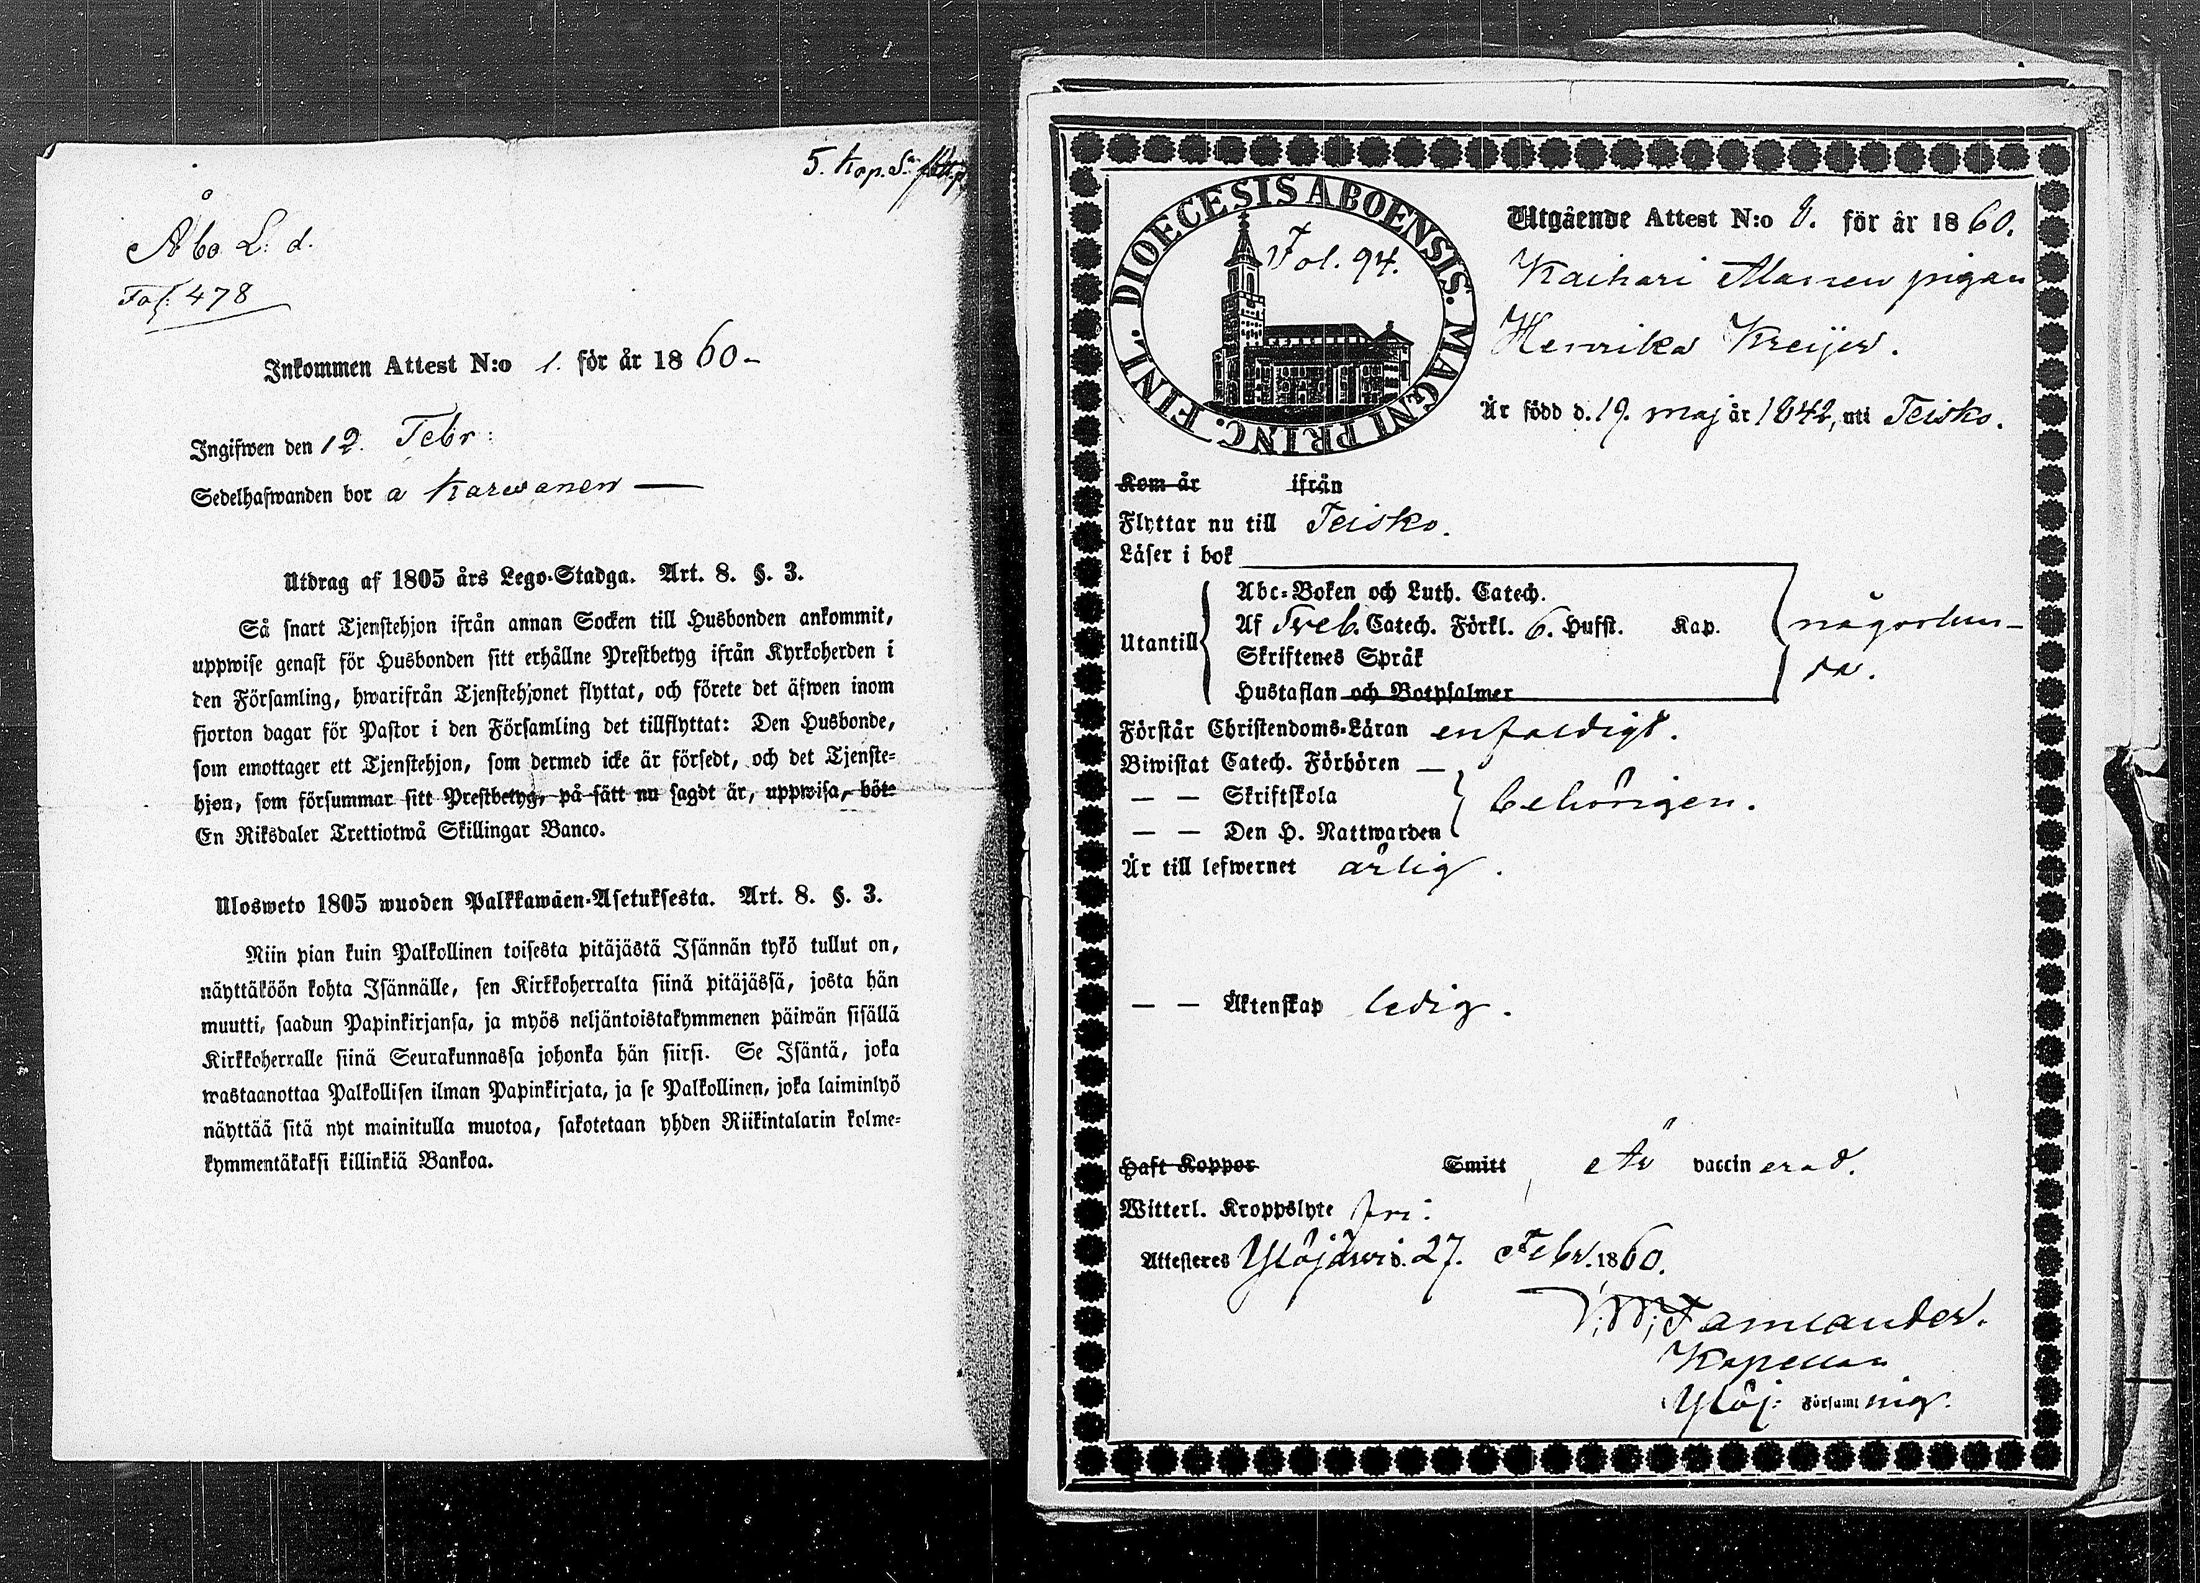 5. Kop. S:r
Åbo L: d.
Fol. 478
Inkommen Attest N:o 1. för år 1860-
Ingifwen den 12. Febr:
Sedelhafwanden bor a Karwanen
Utdrag af 1805 års Lego-Stadga. Art. 8. §. 3.
Så snart Tjenstehjon ifrån annan Socken till Husbonden ankommit,
uppwise genast för Husbonden sitt erhållne Prestbetyg ifrån Kyrkoherden i
den Församling, hwarifrån Tjenstehjonet flyttat, och förete det äfwen inom
fjorton dagar för Pastor i den Församling det tillflyttat: Den Husbonde,
som emottager ett Tjenstehjon, som dermed icke är försedt, och det Tjenste-
hjon, som försummar sitt Prestbetyg, på sätt nu sagdt är, uppwisa, böte
En Riksdaler Trettiotwå Skillingar Banco.
Ulosweto 1805 wuoden Palkkawäen-Asetuksesta. Art. 8. §. 3.
Niin pian kuin Palkollinen toisesta pitäjästä Isännän tykö tullut on,
näyttäköön kohta Isännälle, sen Kirkkoherralta siinä pitäjässä, josta hän
muutti, saadun Papinkirjansa, ja myös neljäntoistakymmenen päiwän sisällä
Kirkkoherralle siinä Seurakunnassa johonka hän siirsi. Se Isäntä, joka
wastaanottaa Palkollisen ilman Papinkirjata, ja se Palkollinen, joka laiminlyö
näyttää sitä nyt mainitulla muotoa, sakotetaan yhden Riikintalarin kolme-
kymmentäkaksi killinkiä Bankoa.
DIOECESIS ABOENSIS. MAGNI PRINC. FINL.
Fol. 94.
Utgående Attest N:o 8. för år 1860.
Kaihari Alanen pigan
Henrika Kreijer.
Är född d. 19. maj år 1842, uti Teisko.
Kom år ifrån
Flyttar nu till Teisko.
Läser i bok
Abc-Boken och Luth. Catech.
Utantill
Af Sveb. Catech. Förkl. 6. Hufst. Kap.
Skriftenes Språk
Hustaflan och Botpsalmer
någorlun-
da.
Förstår Christendoms-Läran enfaldigt.
Biwistat Catech. Förhören —
— — Skriftskola
— — Den H. Nattwarden
behörigen.
Är till lefwernet ärlig.
— — Äktenskap ledig.
Haft Koppor Smitt Är vaccinerad.
Witterl. Kroppslyte fri:
Attesteres Ylöjärwi d. 27. Febr. 1860.
Tamlander.
Kapellan
Ylöj: Församlning.